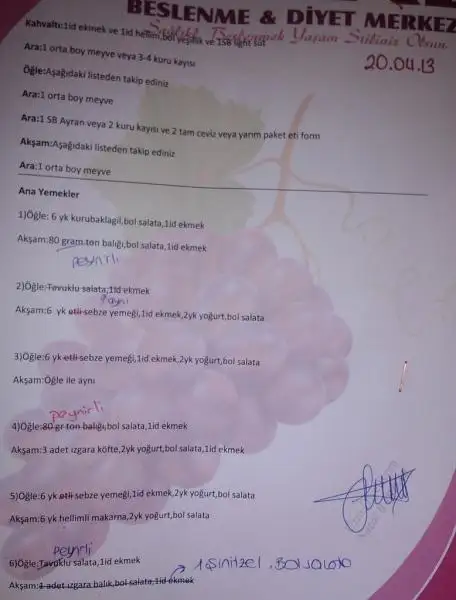 BESLENME & DİYET MERKEZ
Sağlıklı Beslenmek Yaşam Stiliniz Olsun
Kahvaltı:1id ekmek ve 1id hellim,bol yeşillik ve 1SB light süt
20.04.13
Ara:1 orta boy meyve veya 3-4 kuru kayısı
Öğle:Aşağıdaki listeden takip ediniz
Ara:1 orta boy meyve
Ara:1 SB Ayran veya 2 kuru kayısı ve 2 tam ceviz veya yarım paket eti form
Akşam:Aşağıdaki listeden takip ediniz
Ara:1 orta boy meyve
Ana Yemekler
1)Öğle: 6 yk kurubaklagil,bol salata,1id ekmek
Akşam:80 gram ton balığı,bol salata,1id ekmek
peynirli
2)Öğle:Tavuklu salata,1id ekmek
aynı
Akşam:6 yk etli sebze yemeği,1id ekmek,2yk yoğurt,bol salata
3)Öğle:6 yk etli sebze yemeği,1id ekmek,2yk yoğurt,bol salata
Akşam:Öğle ile aynı
peynirli
4)Öğle:80 gr ton balığı,bol salata,1id ekmek
Akşam:3 adet ızgara köfte,2yk yoğurt,bol salata,1id ekmek
5)Öğle:6 yk etli sebze yemeği,1id ekmek,2yk yoğurt,bol salata
Akşam:6 yk hellimli makarna,2yk yoğurt,bol salata
peynirli
6)Öğle:Tavuklu salata,1id ekmek
1 şinitzel, Bol salata
Akşam:1 adet ızgara balık,bol salata,1id ekmek